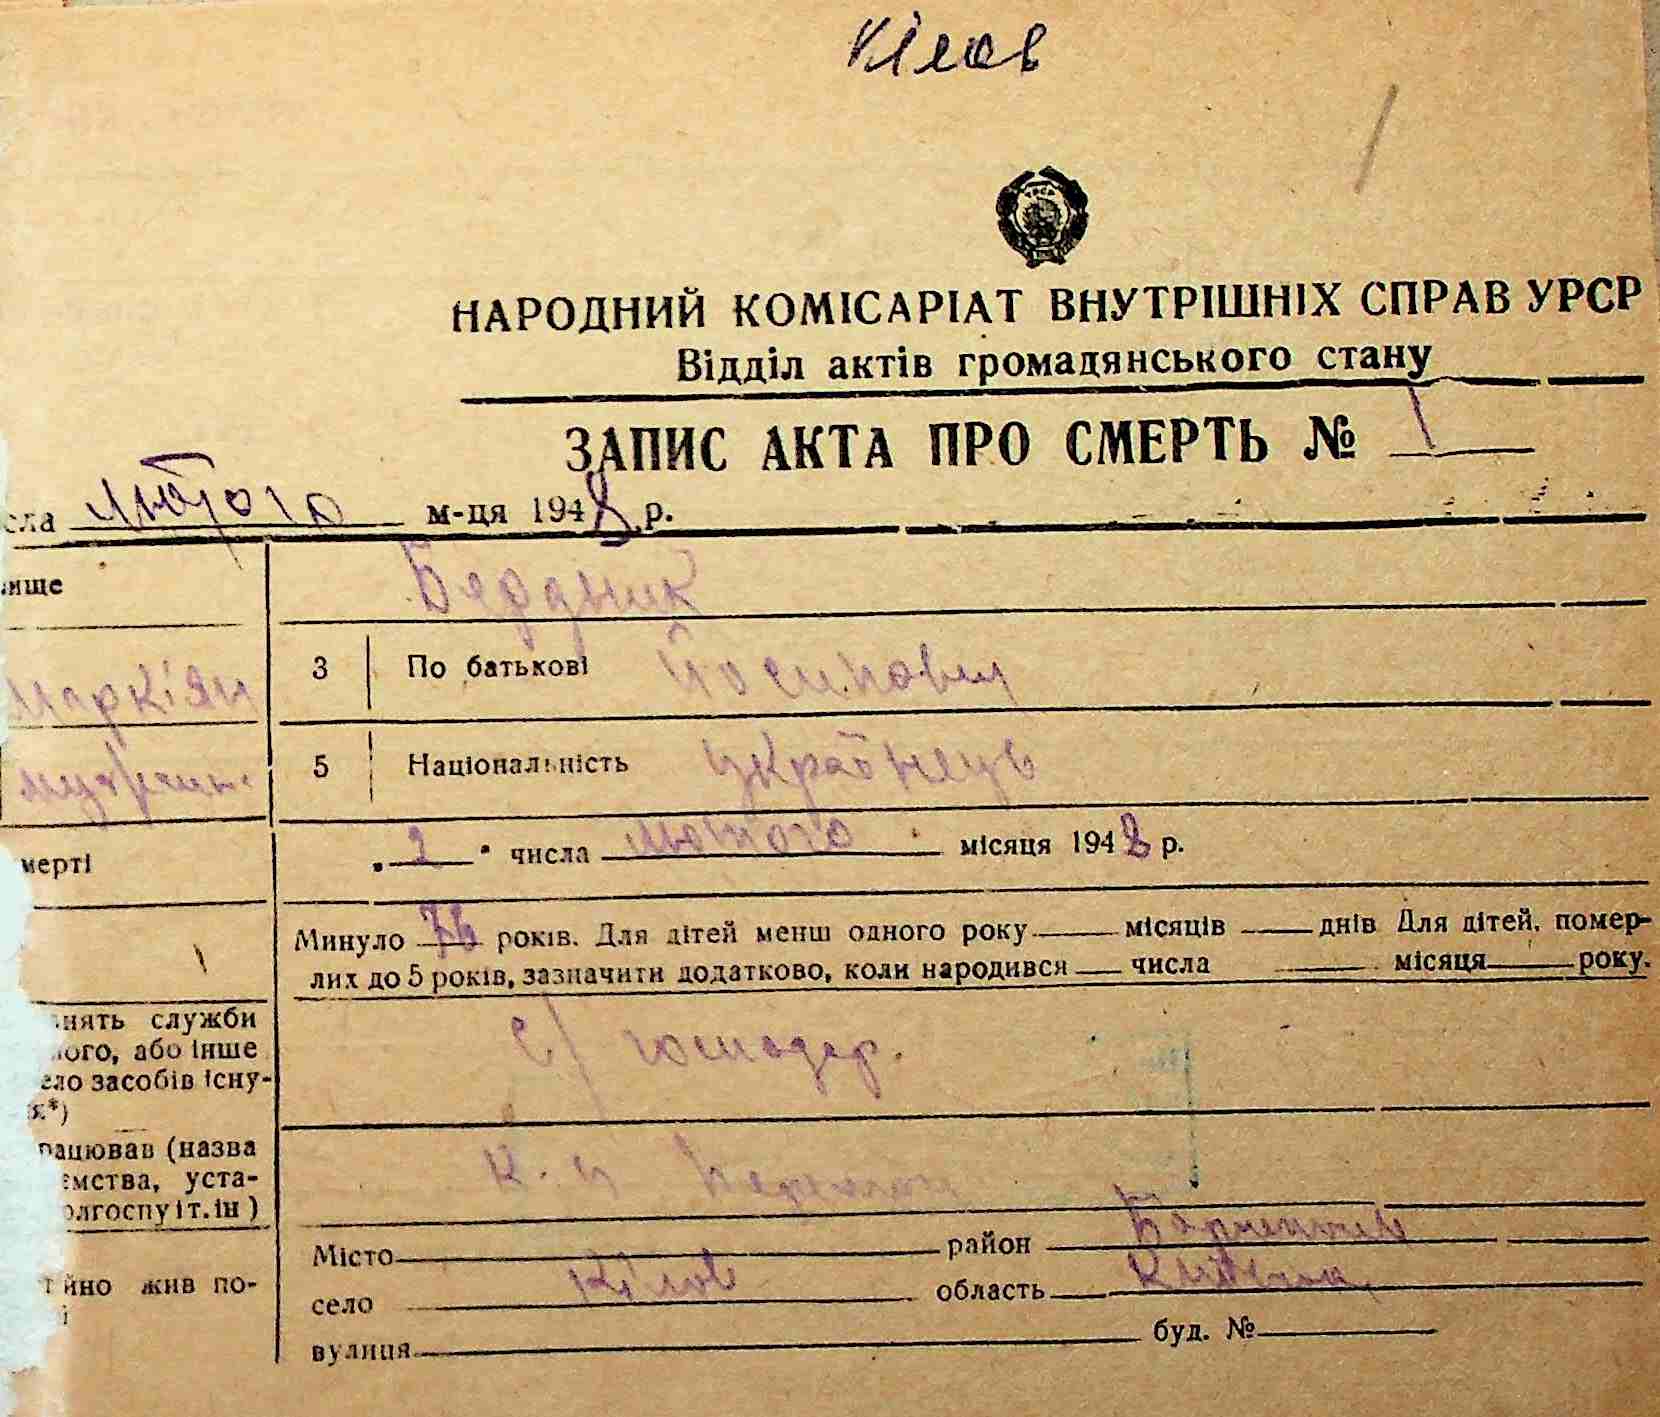 Кілов
НАРОДНИЙ КОМІСАРІАТ ВНУТРІШНІХ СПРАВ УРСР
Відділ актів громадянського стану
ЗАПИС АКТА ПРО СМЕРТЬ № 1
сла лютого м-ця 1948 р.
ище Бердник
Маркіян 3 По батькові Йосипович
5 Національність українець
мерті „2" числа лютого місяця 1948 р.
Минуло 76 років. Для дітей менш одного року місяців днів Для дітей, помер-
лих до 5 років, зазначити додатково, коли народився числа місяця року.
нять служби
ого, або інше
ело засобів існу-
я*)
с/господар.
рацював (назва
ємства, уста-
олгоспу і т. ін)
Місто район
село Кілов область Київська
йно жив по-
і
вулиця буд. №